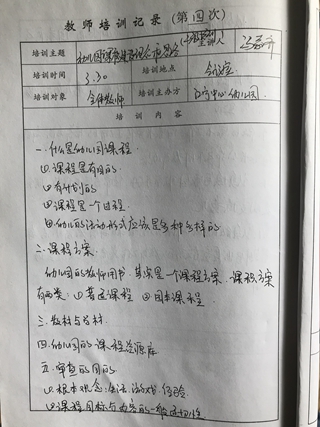 教师培训记录（第四次）
培训主题 幼儿园课程 主讲人
培训时间 3.30 培训地点 会议室
培训对象 全体教师 培训主办方 中心幼儿园
培训内容
一.什么是幼儿园课程.
(1)课程是有目的.
(2)有计划的
(3)课程是一个过程.
(4)幼儿的活动形式应该是多种多样的.
二.课程方案.
幼儿园的教师用书.其实是一个课程方案.课程方案
有两类:(1)普适课程 (2)园本课程.
三.教材与
四.幼儿园的课程资源库
五.审查的目的
(1)根本观念:生活.游戏.经验
(2)课程目标与内容的一致适切性